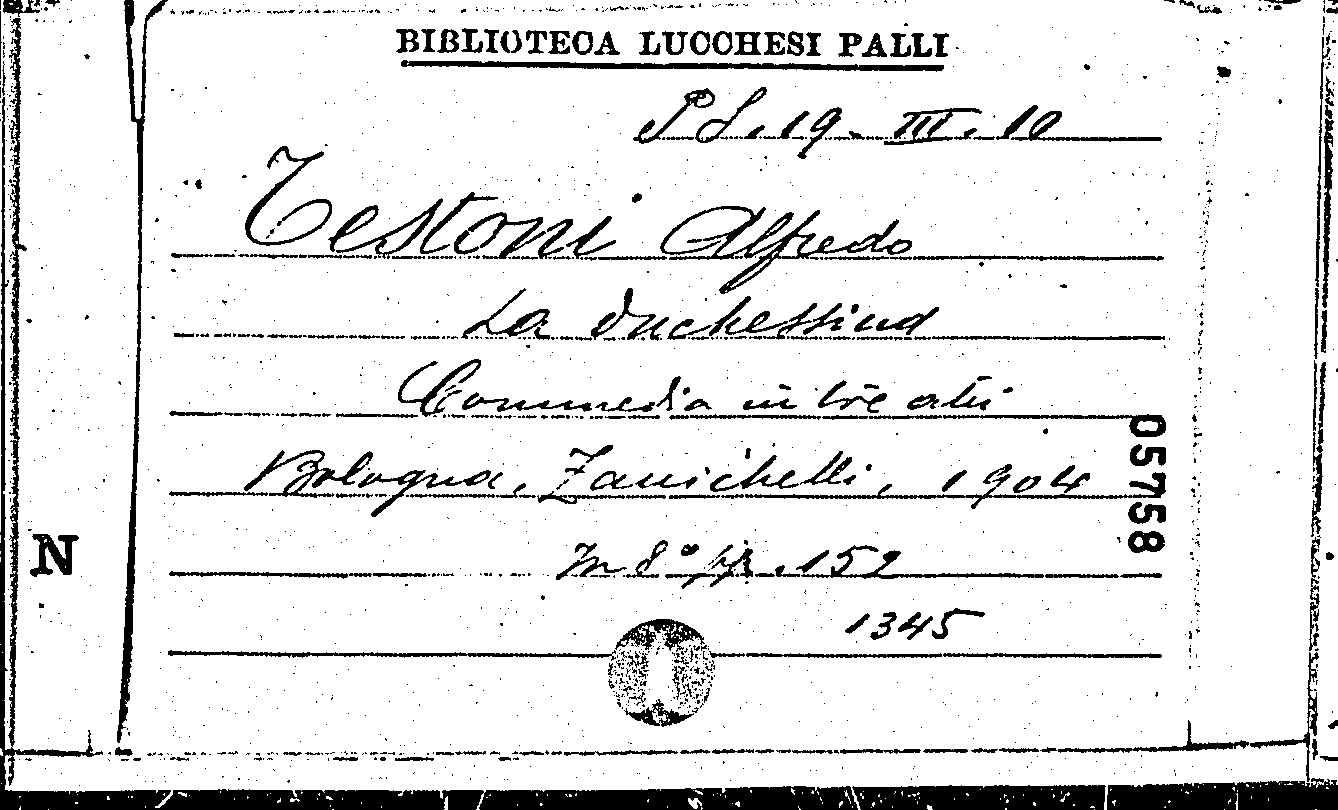 BIBLIOTECA LUCCHESI PALLI
P S. 19. III. 10
Testoni Alfredo
La duchessina
Commedia in tre atti
Bologna, Zanichelli, 1904
05758
N
In 8° pp. 152
1345